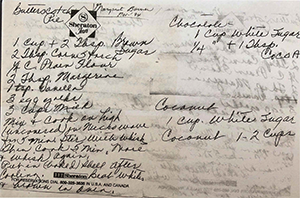 Butterscotch Pie
Margaret Bowen
Sheraton
Inn
1 Cup + 2 Tbsp. Brown Sugar
2 Tbsp Corn Starch
1/4 C. Plain Flour
2 Tbsp. Margarine
1 tsp Vanilla
3 egg yolks
2 Milk
Mix & Cook on high
uncovered in Microwave
3 min. Stir With Whisk
Then Cook 3 Min. More
& Whisk again
Put in Cooked Shell after
Cooling. Beat White
& Brown in Oven
Sheraton
800-325-3535 IN U.S.A. AND CANADA
Chocolate -
1 Cup White Sugar
1/4 + 1 Tbsp.
Cocoa
Coconut
1 Cup. White Sugar
Coconut 1-2 Cups